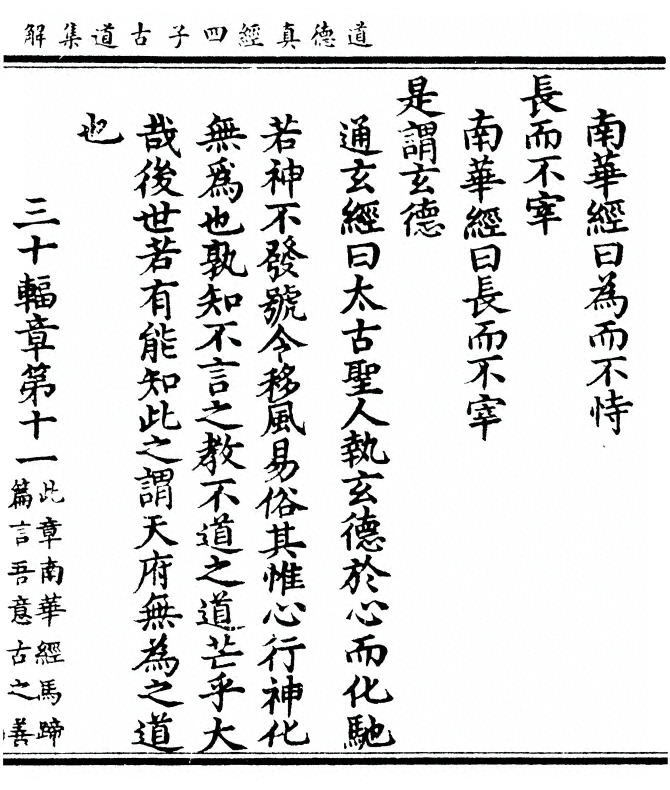 道德真經四子古道集解
南華經曰為而不恃
長而不宰
南華經曰長而不宰
是謂玄德
通玄經曰太古聖人執玄德於心而化馳
若神不發號令移風易俗其惟心行神化
無爲也孰知不言之教不道之道芒乎大
哉後世若有能知此之謂天府無為之道
也
三十輻章第十一
此章南華經馬蹄
篇言吾意古之善